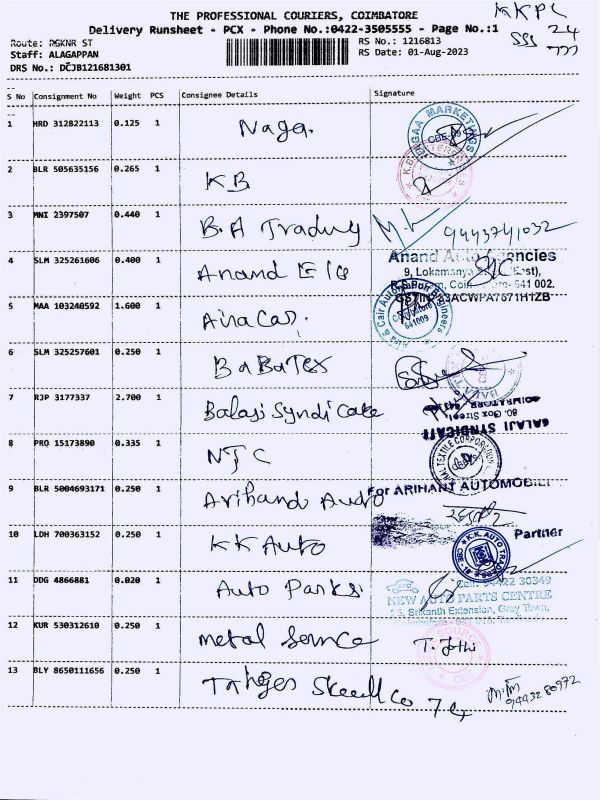 THE PROFESSIONAL COURIERS, COIMBATORE
KKPC
Delivery Runsheet - PCX - Phone No.:0422-3505555 - Page No.:1
Route: RGKNR ST
RS No.: 1216813
SSS 24
Staff: ALAGAPPAN
RS Date: 01-Aug-2023
DRS No.: DCJB121681301
S No Consignment No Weight PCS Consignee Details Signature
1 HRD 312822113 0.125 1 Naga.
2 BLR 505635156 0.265 1 KB
3 MNI 2397507 0.440 1 B.A Trading 9443741032
4 SLM 325261606 0.400 1 Anand
Anand Auto Agencies
9, Lokamanya
641 002.
5 MAA 103240592 1.600 1
641009
6 SLM 325257601 0.250 1 BaBaTex
7 RJP 3177337 2.700 1 Balaji Syndicate
80, Gox Street
BALAJI SYNDICATE
8 PRO 15173890 0.335 1 NTC
9 BLR 5004693171 0.250 1 Arihand Auto
For ARIHANT AUTOMOBILE
Partner
10 LDH 700363152 0.250 1 KK Auto
K.K. AUTO TRADERS
11 DDG 4866881 0.020 1 Auto Parks
Cell: 94422 30349
NEW AUTO PARTS CENTRE
Srikanth Extension, Grey Town,
12 KUR 530312610 0.250 1 metal Service
13 BLY 8650111656 0.250 1
9443280972